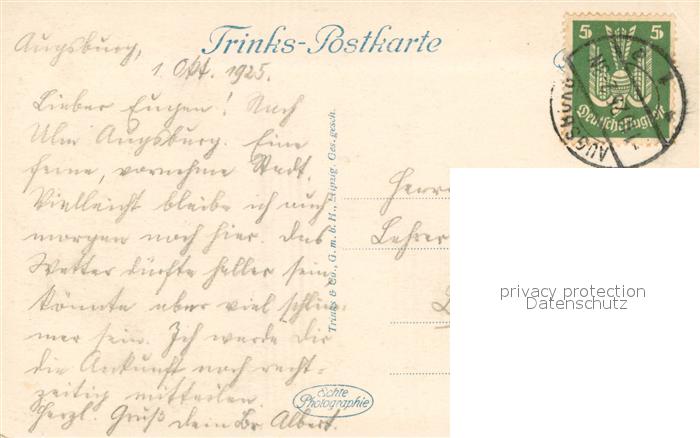 Trinks-Postkarte
Augsburg,
1. Okt. 1925.
Lieber Eugen! Nach
Ulm Augsburg. Eine
feine, vornehme Stadt.
Vielleicht bleibe ich auch
morgen noch hier. Das
Wetter dürfte heller sein,
könnte aber viel schlim-
mer sein. Ich werde dir
die Ankunft noch recht-
zeitig mitteilen.
Herzl. Gruß dein Br. Albert.
Trinks & Co., G. m. b. H., Leipzig. Ges. gesch.
Echte
Photographie
5 5
Deutsche Flugpost
AUGSBURG
Herrn
Lehrer
privacy protection
Datenschutz